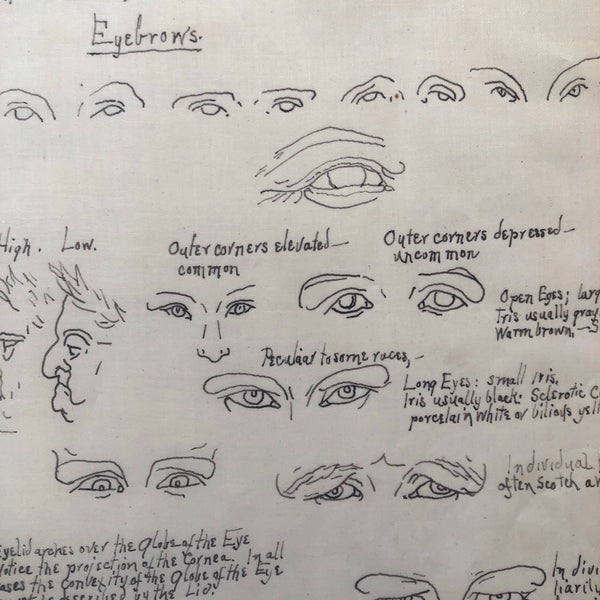 Eyebrows.
High. Low.
Outer corners elevated—
common
Outer corners depressed—
uncommon
Open Eyes; larg
Iris usually gray
Warm brown.—S
Peculiar to some races,—
Long Eyes: small Iris.
Iris usually black: Sclerotic C
porcelain white or bilious yell
Individual
often Scotch an
Eyelid arches over the globe of the Eye
Notice the projection of the Cornea. In all
cases the convexity of the Globe of the Eye
described by the Lid.
In divi
liarity